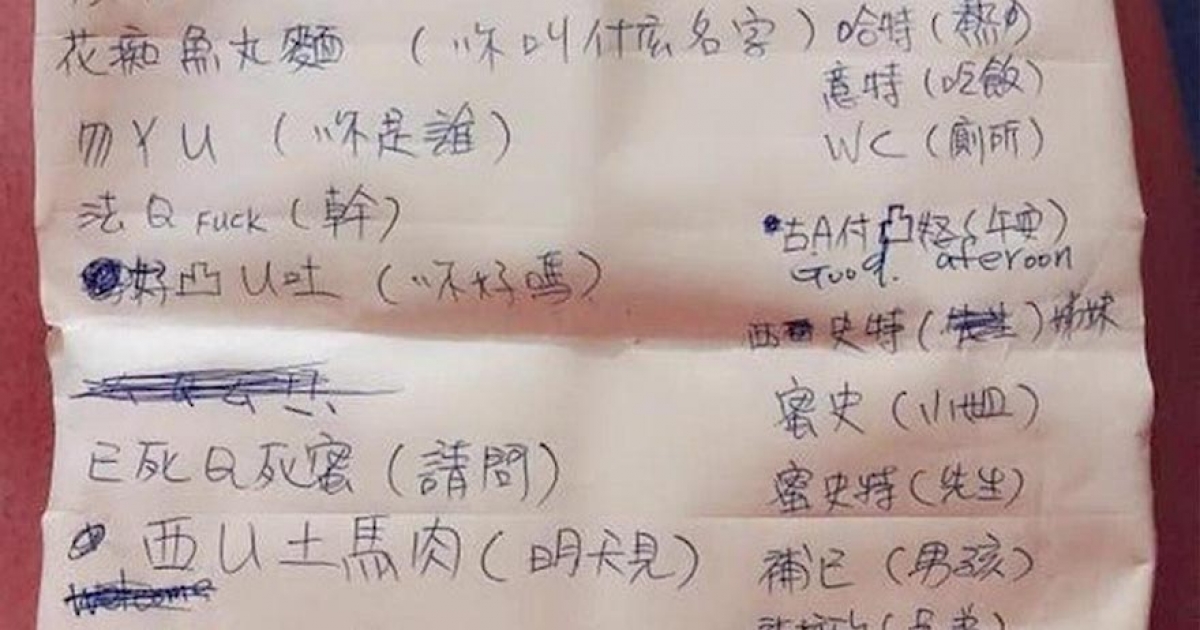 花痴魚丸麵 (你叫什庅名字)
勿YU (你是誰)
法Q Fuck (幹)
好凸U吐 (你好嗎)
已死Q死蜜 (請問)
西U土馬肉 (明天見)
Welcome
哈特 (熱)
意特 (吃飯)
WC (廁所)
古A付凸怒 (午安)
Good. aferoon
西史特 () 姊妹
蜜史 (小姐)
蜜史特 (先生)
補已 (男孩)